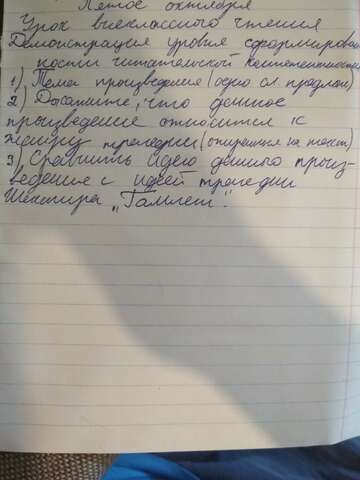 Пятое октября
Урок внеклассного чтения
Демонстрация уровня сформирован
ности читательской компетентности
1) Тема произведения (одно сл. предлож)
2) Докажите, что данное
произведение относится к
жанру трагедии (опираемся на текст)
3) Сравнить идею данного произ-
ведения с идеей трагедии
Шекспира „Гамлет".